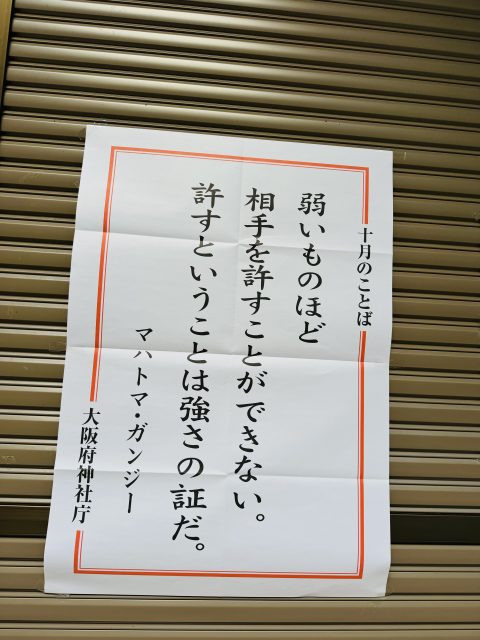 十月のことば
弱いものほど
相手を許すことができない。
許すということは強さの証だ。
マハトマ・ガンジー
大阪府神社庁